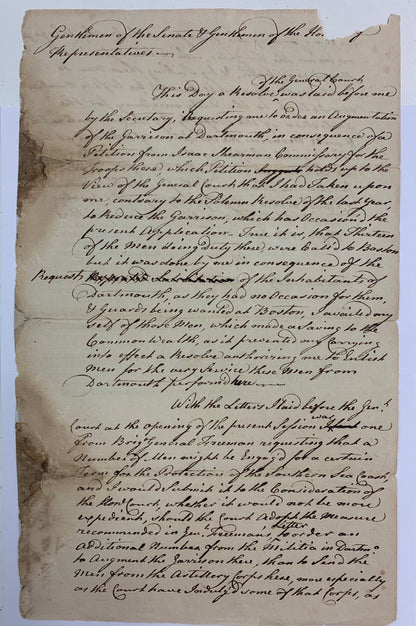 Gentlemen of the Senate & Gentlemen of the House of
Representatives
of the General Court
This Day a Resolve was laid before me
by the Secretary, requesting me to order an Augmentation
of the Garrison at Dartmouth in consequence of a
Petition from Isaac Shearman Commissary for the
Troops there which Petition holds up to the
View of the General Court that I had Taken upon
me, contrary to the Solemn Resolve of the last Year,
to Reduce the Garrison, which has Occasion'd the
present Application. True it is, that Thirteen
of the Men doing Duty there, were Call'd to Boston
but it was done by me in consequence of the
Request of the Inhabitants of
Dartmouth, as they had no Occasion for them,
& Guards being wanted at Boston, I availed my
self of those Men, which made a Saving to the
Common Wealth, as it prevented my Carrying
into effect a Resolve authorizing me to Enlist
Men for the very Service these Men from
Dartmouth perform'd here
With the Letters I laid before the Genl.
Court at the opening of the present Session was one
from Brigr. General Freeman requesting that a
Number of Men might be Engag'd for a certain
Term, for the Protection of the Southern Sea Coast,
and I would Submit it to the Consideration of
the Honl. Court, whether it would not be more
expedient, should the Court Adopt the Measure
recommended in Gen. Freemans Letter to order an
Additional Number from the Militia in Dartmo.
to Augment the Garrison there, than to Send the
Men from the Artillery Corps here, more especially
as the Court have Indulg'd some of that Corps, as